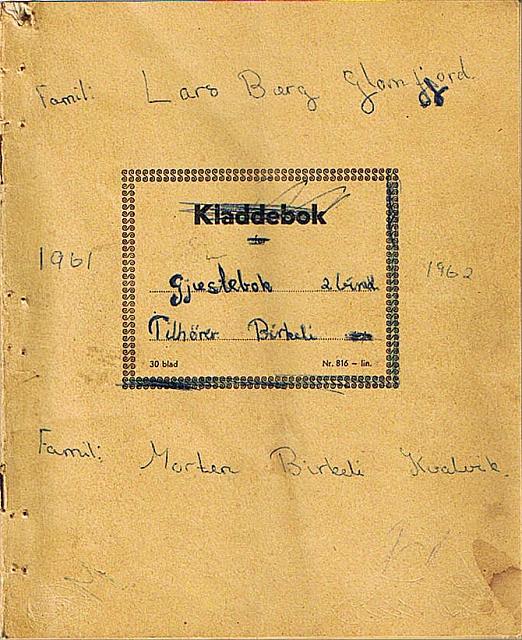 Famil: Lars Berg Glomfjord
Kladdebok
1961
1962
Gjestebok 2 bind
Tilhører Birkeli
30 blad Nr. 816 – lin.
Famil: Morten Birkeli Kvalvik